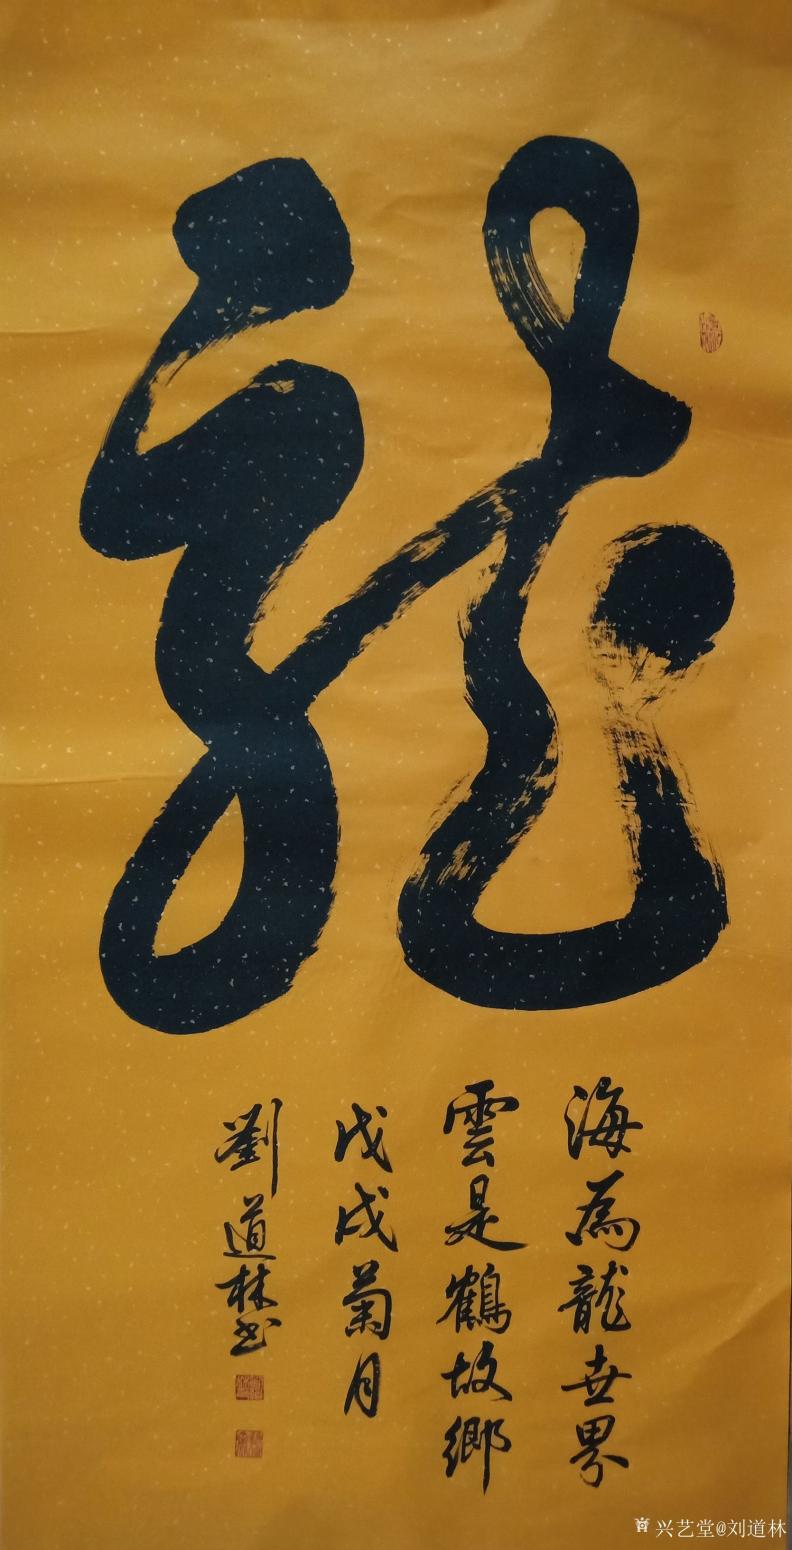 龍
海為龍世界
雲是鶴故鄉
戊戌菊月
劉道林书
兴艺堂@刘道林